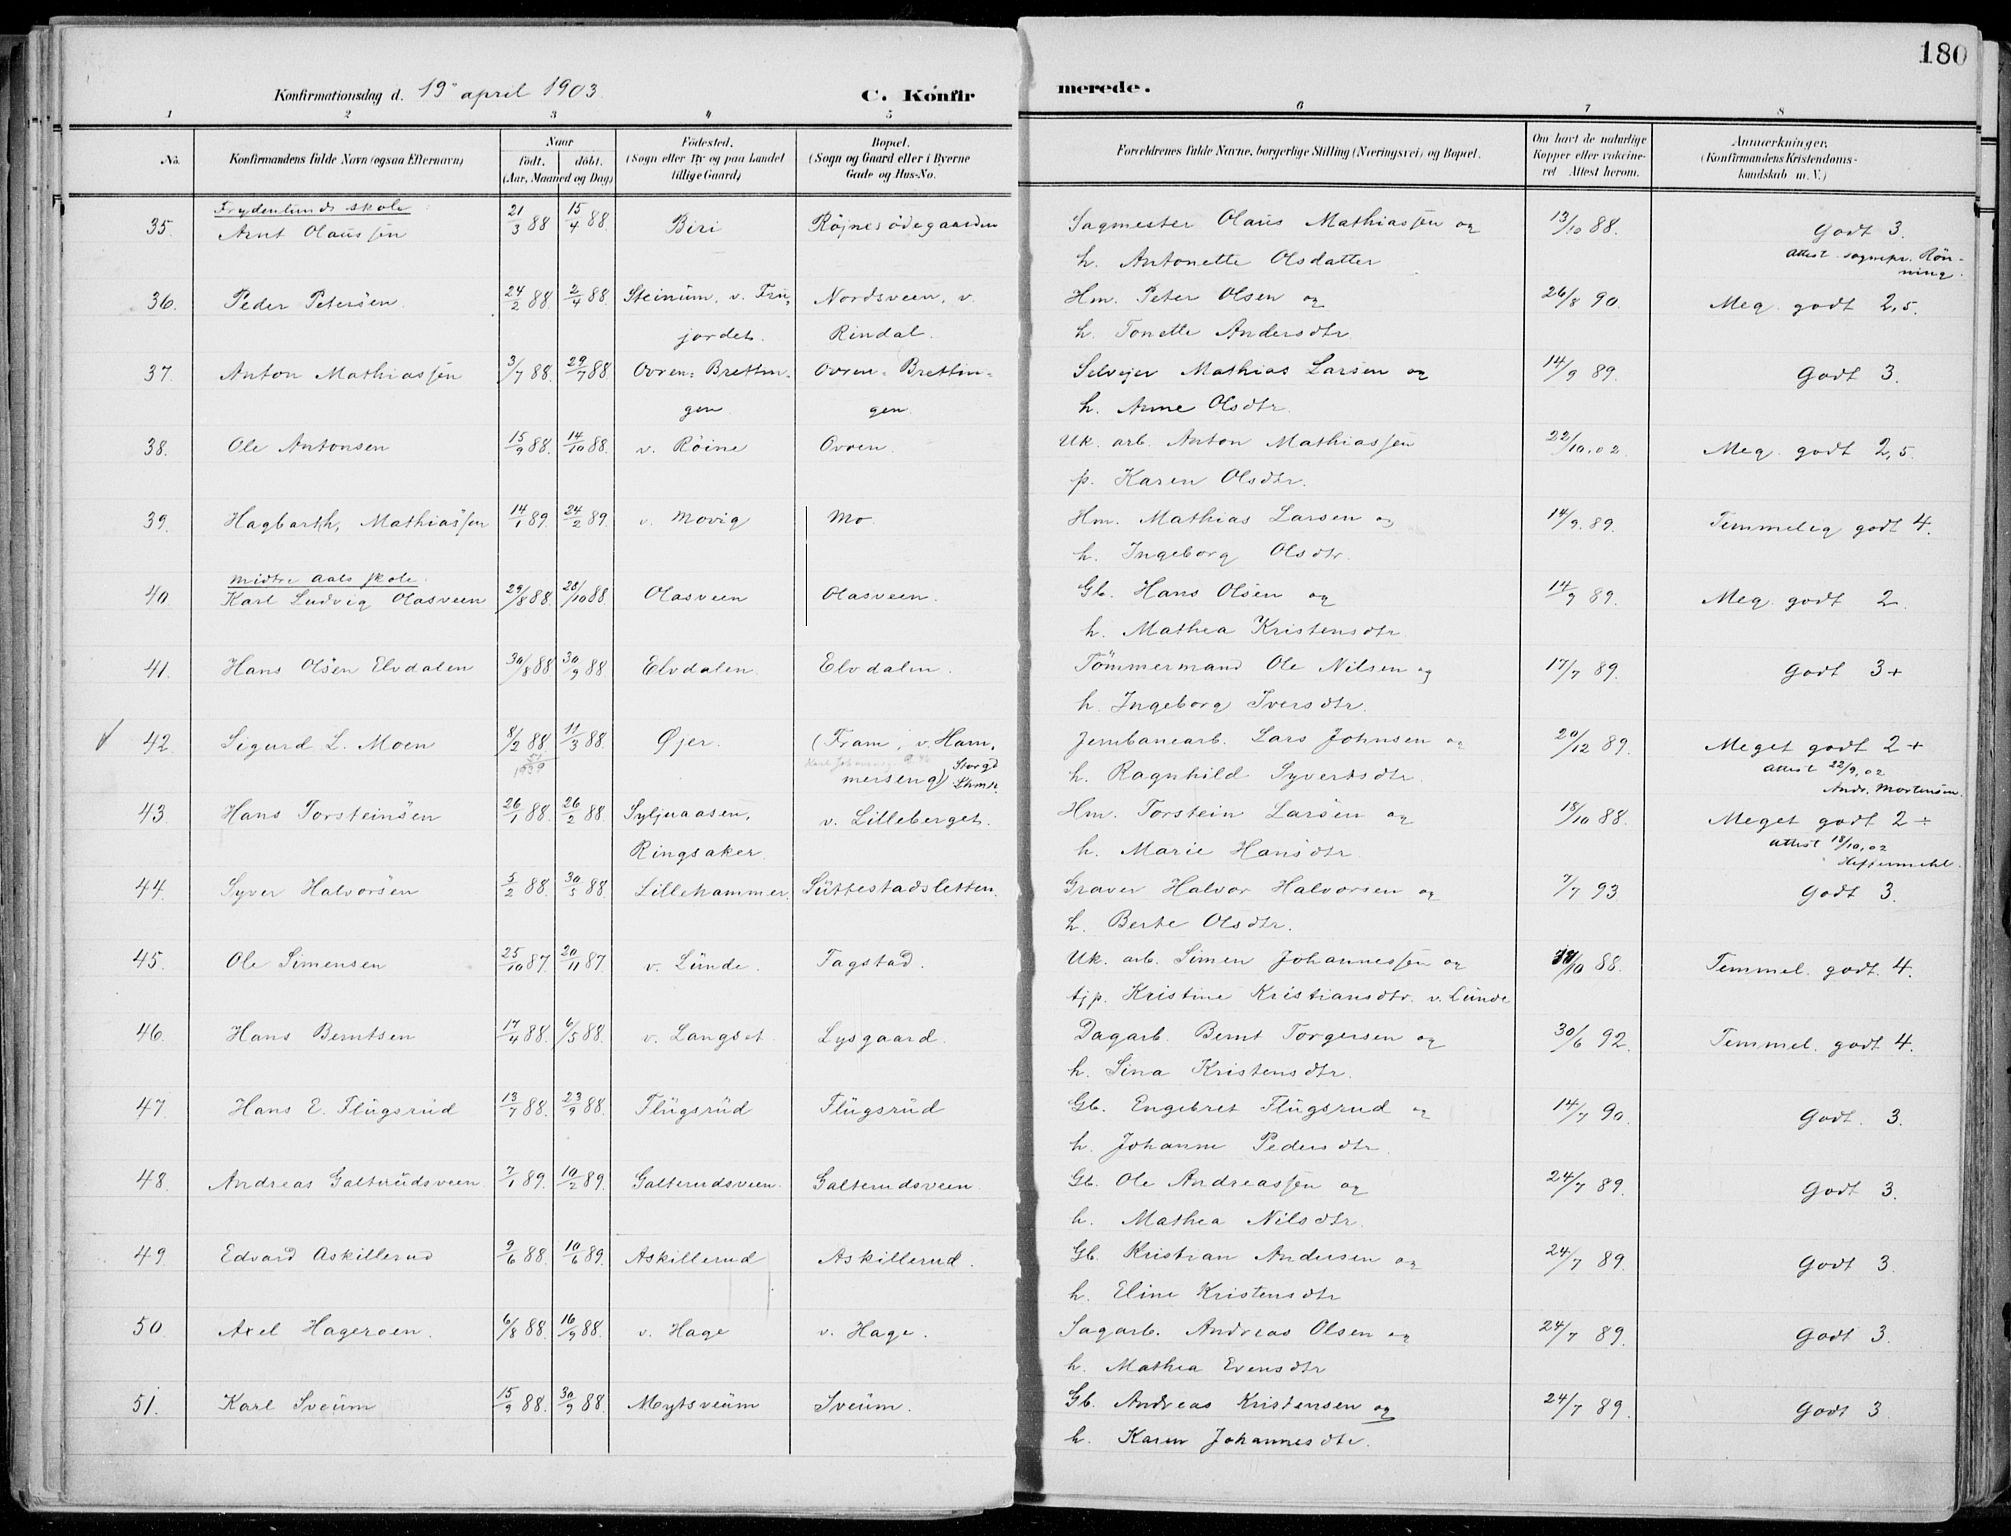 180
Konfirmationsdag d. 19de april 1903.
C. Konfirmerede.
1 2 3 4 5 6 7 8
No. Konfirmandens fulde Navn (ogsaa Efternavn) Naar født. døbt. (Aar, Maaned og Dag) Fødested. (Sogn eller By og paa Landet tillige Gaard) Bopæl. (Sogn og Gaard eller i Byerne Gade og Hus-No. Forældrenes fulde Navne, borgerlige Stilling (Næringsvei) og Bopæl. Om havt de naturlige Kopper eller vakcineret Attest herom. Anmærkninger. (Konfirmandens Kristendomskundskab m. V.)
Frydenlunds skole
35. Arnt Olaussen 21/3 88 15/4 88 Biri Røjnesødegaarden Sagmester Olaus Mathiassen og 13/10 88. Godt 3.
h. Antonette Olsdatter Attest sognepr. Rönning.
36. Peder Petersen. 24/2 88 2/4 88 Steinum, v. Frujordet. Nordsveen, v. Rindal. Hm. Peter Olsen og 26/8 90. Meg. godt 2,5.
h. Tonette Andersdtr.
37. Anton Mathiassen 3/7 88. 29/7 88 Ovren-Brettingen Ovren-Brettingen. Selvejer Mathias Larsen og 14/9 89. Godt 3.
h. Anne Olsdtr.
38. Ole Antonsen 15/9 88. 14/10 88. v. Röine Ovren. Uk. arb. Anton Mathiassen 22/10.02. Meg. godt 2,5.
p. Karen Olsdtr.
39. Hagbarth Mathiassen 14/1 89. 24/2 89. v. Movig Mo. Hm. Mathias Larsen og 14/9. 89. Temmelig godt 4.
h. Ingeborg Olsdtr.
Midtre Aals skole.
40. Karl Ludvig Olasveen 29/8 88. 28/10 88. Olasveen Olasveen. Gb. Hans Olsen og 14/9 89. Meg. godt 2.
h. Mathea Kristensdtr.
41. Hans Olsen Elvdalen 30/8 88 30/9 88 Elvdalen. Elvdalen. Tömmermand Ole Nilsen og 17/7 89. Godt 3+
h. Ingeborg Iversdtr.
42. Sigurd L. Moen 8/2 88. 11/3 88. Øjer. (Fram, v. Hammerseng) Storgd. Lhmr. Jernbanearb. Lars Johnsen og 20/12 89. Meget godt 2+
1939 h. Ragnhild Syverdsdtr. attest 22/9.02 Andr. Mortensen.
43. Hans Torsteinsen 26/1 88. 26/2 88. Syljuaasen, Ringsaker. v. Lilleberget. Hm. Torstein Larsen og 18/10 88. Meget godt 2÷
h. Marie Hansdtr. attest 18/10.02 Heffermehl.
44. Syver Halvorsen 5/2 88. 30/5 88. Lillehammer. Süttestadsletten. Graver Halvor Halvorsen og 7/7 93 Godt 3.
h. Berte Olsdtr.
45. Ole Simensen 25/10 87. 20/11 87. v. Lünde. Fagstad. Uk. arb. Simen Johannessen og 88. Temmel. godt 4.
tjp. Kristine Kristiansdtr. v. Lünde
46. Hans Berntsen 17/4 88. 6/5 88. v. Langset. Lysgaard. Dagarb. Bernt Torgersen og 30/6 92. Temmel. godt 4.
h. Sina Kristensdtr.
47. Hans E. Flügsrüd 13/7 88. 23/9 88. Flügsrüd Flügsrüd Gb. Engebret Flügsrud og 14/7 90. Godt. 3.
h. Johanne Pedersdtr.
48. Andreas Galterüdsveen 7/1 89. 10/2 89. Galterudsveen. Galterudsveen. Gb. Ole Andreassen og 24/7 89. Godt 3.
h. Mathea Nilsdtr.
49. Edvard Askillerud 9/6 88. 10/6 89. Askillerud Askillerud. Gb. Kristian Andersen og 24/7 89. Godt 3.
h. Eline Kristensdtr
50. Axel Hageroen. 6/8 88. 16/9 88. v. Hage v. Hage. Sagarb. Andreas Olsen og 24/7 89. Godt 3.
h. Mathea Evensdtr
51. Karl Sveüm 15/9 88. 30/9 88. Mytsveüm Sveüm. Gb. Andreas Kristensen og 24/7 89. Godt 3
h. Karen Johannesdtr.